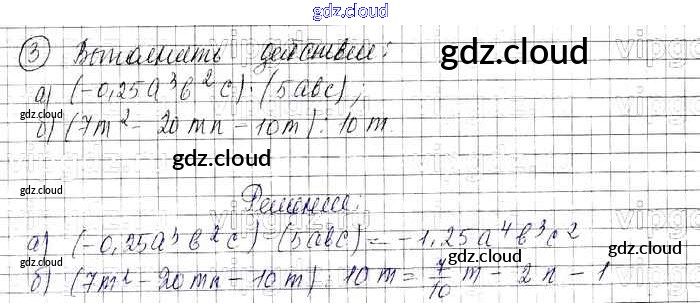 gdz.cloud
③ Выполнить действия:
gdz.cloud
а) (-0,25a³b²c) · (5abc),
gdz.cloud
б) (7m² - 20mn - 10m) : 10m
gdz.cloud
gdz.cloud
Решение:
gdz.cloud
а) (-0,25a³b²c) · (5abc) = -1,25a⁴b³c²
gdz.cloud
б) (7m² - 20mn - 10m) : 10m = 7/10 m - 2n - 1
gdz.cloud
gdz.cloud